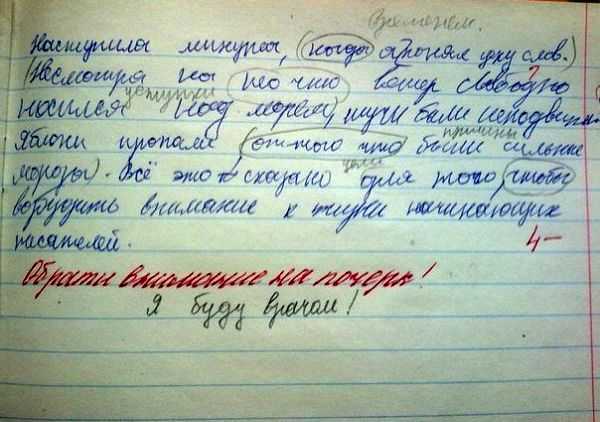 временем.
Наступила минута, (когда я понял цену слов.)
(Несмотря на то что ветер свободно
уступки
носился над морем), тучи были неподвижны.
Яблоки пропали (оттого что были сильные
причины
морозы). Всё это сказано для того, чтобы
цели
возбудить внимание к жизни начинающих
писателей.
4-
Обрати внимание на почерк!
Я буду врачом!